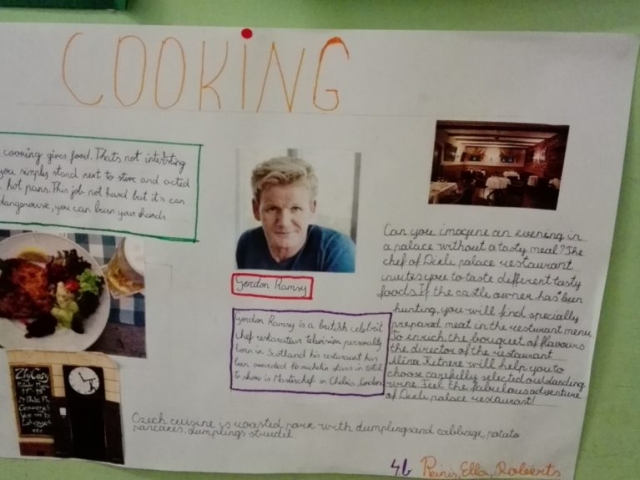 COOKING
cooking gives food. Thats not interesting
you simply stand next to stove and
hot pans. This job not hard but it's can
dangerouse, you can burn your hands
Gordon Ramsy
Gordon Ramsy is a british celebrit
chef restaurateur television personality
born in Scotland his restaurant has
been awarded 16 michelin stars in total
tv show is Masterchef in Chelsea, London
Can you imagine an evening in
a palace without a tasty meal? The
chef of Dikli palace restaurant
invites you to taste different tasty
foods if the castle owner has been
hunting, you will find specially
prepared meat in the resturant menu
To enrich the bouquet of flavours
the director of the restaurant
will help you to
choose carefully selected outstanding
wine Feel the fabulous adventure
of Dikli palace restaurant!
Czech cuisine is roasted pork with dumplings and cabbage, potato
pancakes, dumplings strudel
4b Reinis, Ella, Roberts